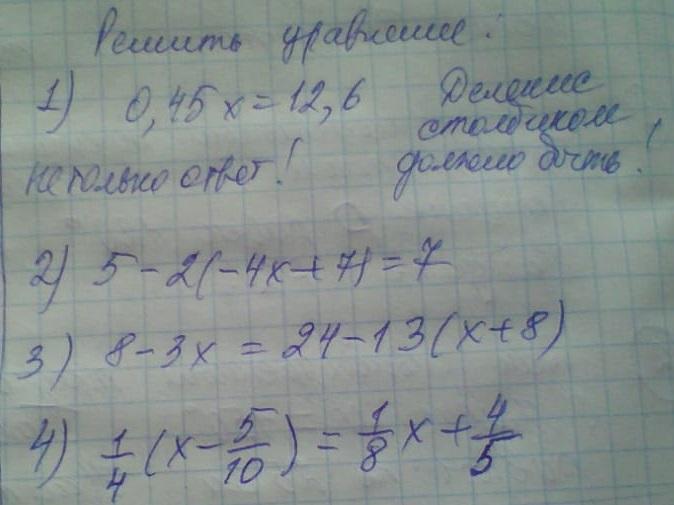 Решить уравнение:
1) 0,45x = 12,6
Деление
столбиком
не только ответ!
должно быть!
2) 5 - 2(-4x + 7) = 7
3) 8 - 3x = 24 - 13(x + 8)
4) 1/4 (x - 5/10) = 1/8 x + 4/5